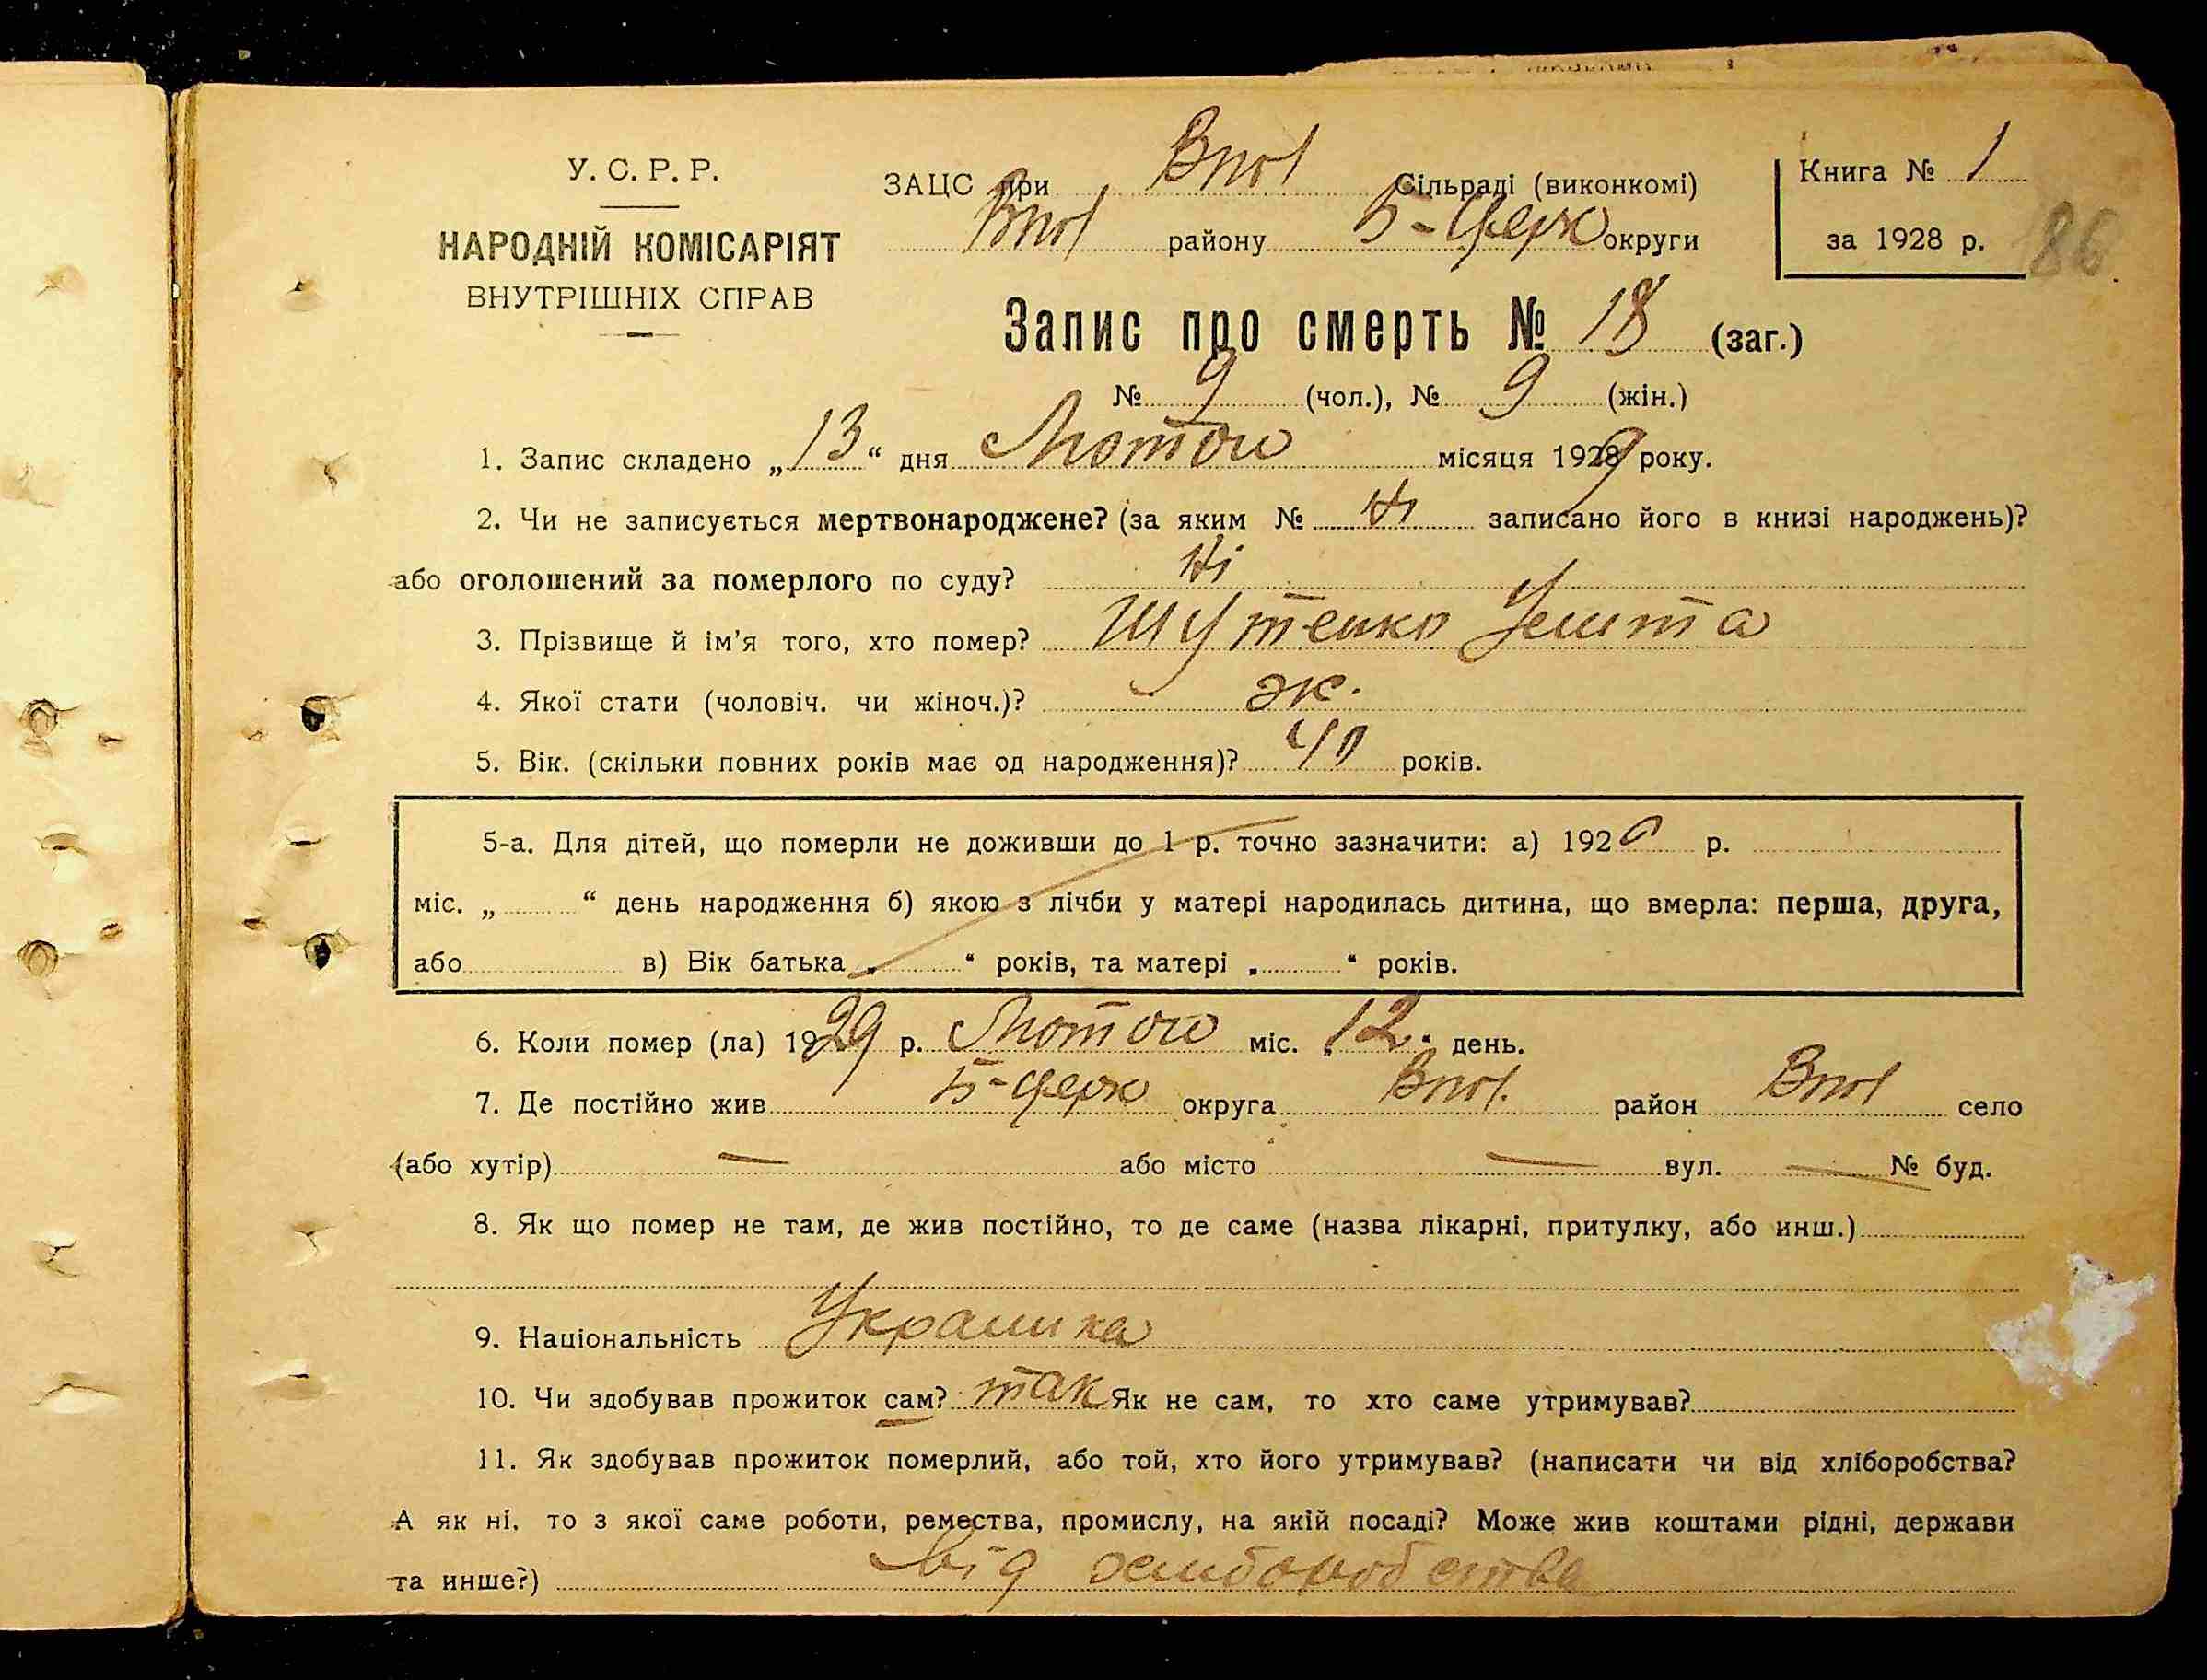 У. С. Р. Р.
НАРОДНІЙ КОМІСАРІЯТ
ВНУТРІШНІХ СПРАВ
ЗАЦС при Сільраді (виконкомі)
району Б-Церк округи
Книга № 1
за 1928 р.
86
Запис про смерть № 18 (заг.)
№ 9 (чол.), № 9 (жін.)
1. Запис складено „13“ дня Лютого місяця 1929 року.
2. Чи не записується мертвонароджене? (за яким № Ні записано його в книзі народжень)?
або оголошений за померлого по суду? Ні
3. Прізвище й ім’я того, хто помер? Шутенко
4. Якої стати (чоловіч. чи жіноч.)? ж.
5. Вік. (скільки повних років має од народження)? 40 років.
5-а. Для дітей, що померли не доживши до 1 р. точно зазначити: а) 192 р.
міс. „ “ день народження б) якою з лічби у матері народилась дитина, що вмерла: перша, друга,
або в) Вік батька „ “ років, та матері „ “ років.
6. Коли помер (ла) 1929 р. Лютого міс. „12“ день.
7. Де постійно жив Б-Церк округа район село
(або хутір) — або місто — вул. — № буд.
8. Як що помер не там, де жив постійно, то де саме (назва лікарні, притулку, або инш.)
9. Національність Українка
10. Чи здобував прожиток сам? так Як не сам, то хто саме утримував?
11. Як здобував прожиток померлий, або той, хто його утримував? (написати чи від хліборобства?
А як ні, то з якої саме роботи, ремества, промислу, на якій посаді? Може жив коштами рідні, держави
та инше?) Від хліборобства